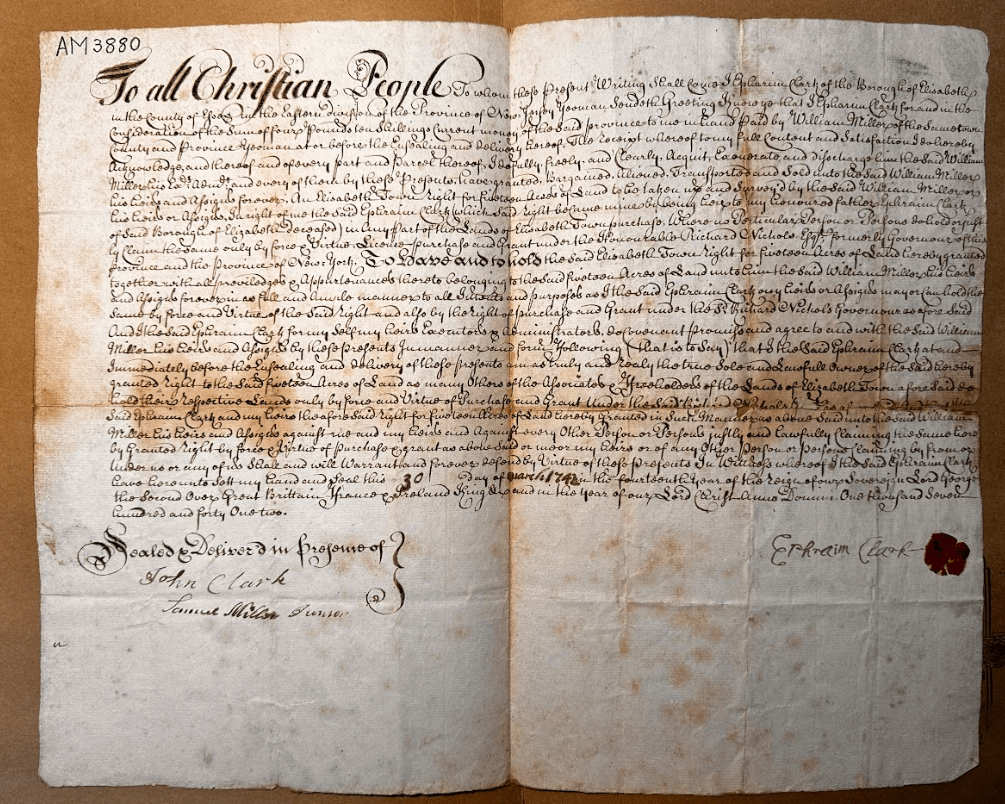 AM 3880
To all Christian People To whom these Present Writing Shall Come I Ephraim Clark of the Borough of Elizabeth
in the County of Essex In the Eastern division of the Province of New Jersey Yeoman Sendeth Greeting Know ye that I Ephraim Clark for and in the
Consideration of the Sum of four Pounds ten Shillings Current money of the Said province to me in hand Paid by William Miller of the Same town
County and Province Yeoman at or before the Ensealing and Delivery hereof. The Receipt whereof to my full Content and Satisfaction I do hereby
Acknowledge, and thereof and of every part and Parcel thereof, I do fully, freely, and Clearly, Acquit, Exonerate and Discharge him the Said William
Miller his and every of them by these Presents, have granted, Bargained, Aliened, Transported and Sold unto the Said William Miller
his heirs and Assigns forever. An Elizabeth Town Right for fiveteen Acres of Land to be taken up and Survey'd by the Said William Miller or
his heirs or Assigns, In right of me the Said Ephraim Clark (which Said right became mine by being heir to my honoured father Ephraim Clark
of Said Borough of Elizabeth deceased) in any Part of the Lands of Elizabeth Town purchase, Where no Perticular Person or Persons do hold
Claim the Same only by force & Virtue, Licence purchase and Grant under the Honourable Richard Nichols, Esqr. formerly Governour of this
province and the Province of New York, To have and to hold the Said Elizabeth Town Right for fiveteen Acres of Land hereby granted
together with all priviledges & Appurtenances thereto belonging to the Said fiveteen Acres of Land unto him the Said William Miller his heirs
and Assigns forever in as full and Ample manner to all Intents and purposes as I the Said Ephraim Clark my heirs or Assigns may or Can hold the
Same by force and Virtue of the Said Right and also by the Right of purchase and Grant under the Sd. Richard Nichols Governour as afore Said
And I the Said Ephraim Clark for my Self my heirs Executors & Administrators, do Covenant Promise and agree to and with the Said William
Miller his heirs and Assigns by these Presents In manner and form following (that is to Say) that I the Said Ephraim Clark at and
Immediately before the Ensealing and delivery of these presents am as truly and really the true Sole and Lawfull Owner of the Said hereby
granted Right to the Said fiveteen Acres of Land as many Others of the Associates & freeholders of the Lands of Elizabeth Town afore Said do
hold their respective Lands only by force and Virtue of Purchase and Grant Under the Said Richard Nichols
Said Ephraim Clark and my heirs the afore Said right for fiveteen Acres of Land hereby granted in Such Manner as above Said unto the Said William
Miller his heirs and Assigns against me and my heirs and Against every Other Person or Persons justly and lawfully Claiming the Same here
by Granted Right by force & Virtue of purchase & grant as above Said or me or my heirs or of any Other Person or Persons Claiming by from or
Under us or any of us Shall and will Warrant and forever defend by Virtue of these Presents In Witness whereof I the Said Ephraim Clark
have hereunto Sett my Hand and Seal this 30 day of march 1742 in the fourteenth year of the Reign of our Sovereign Lord George
the Second Over Great Brittain France & Ireland King &c and in the Year of our Lord Christ Anno Domini One thousand Seven
hundred and forty One two.
Sealed & Deliver'd in Presence of
Ephraim Clark
John Clark
Samuel Miller Junior